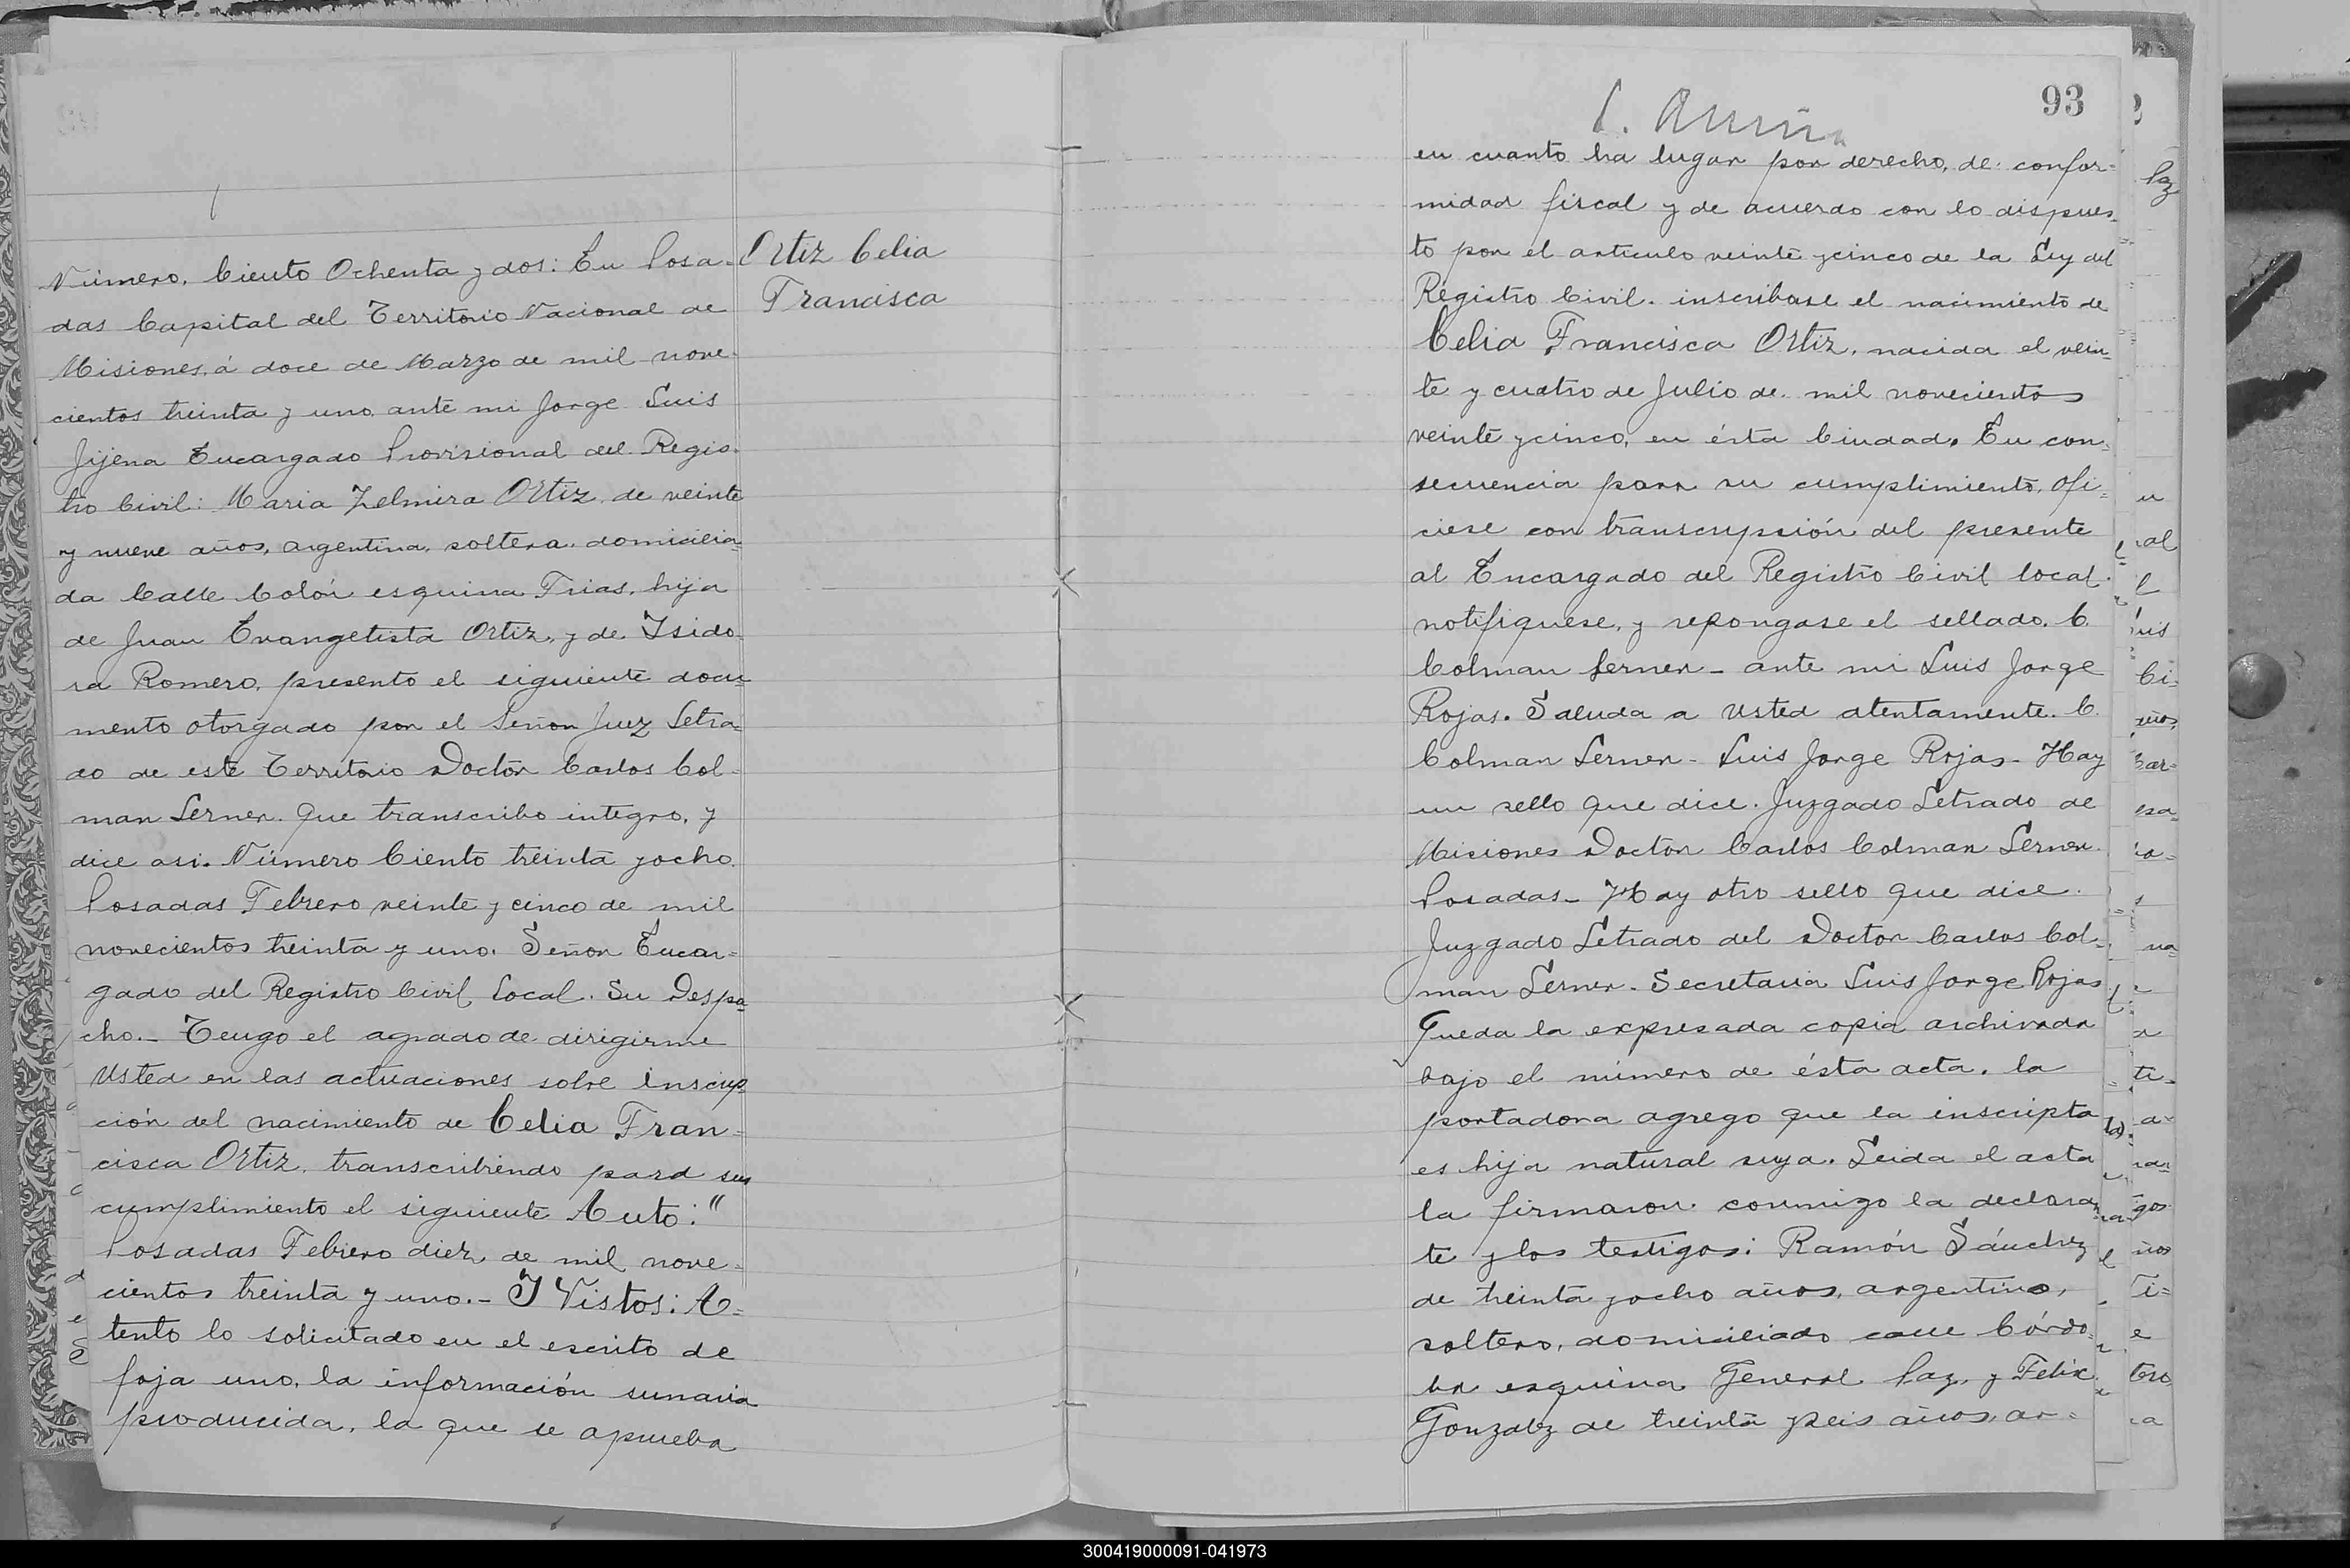 Número, Ciento Ochenta y dos: En Posa-
das Capital del Territorio Nacional de
Misiones, á doce de Marzo de mil nove-
cientos treinta y uno, ante mi Jorge Luis
Jijena Encargado Provisional del Regis-
tro Civil: Maria Zelmira Ortiz, de veinte
y nueve años, argentina, soltera, domicilia-
da Calle Colón esquina Frias, hija
de Juan Evangelista Ortiz, y de Isido-
ra Romero, presentó el siguiente docu-
mento otorgado por el Señor Juez Letra-
do de este Territorio Doctor Carlos Col-
man Lerner. Que transcribo integro, y
dice asi. Número Ciento treinta y ocho.
Posadas Febrero veinte y cinco de mil
novecientos treinta y uno. Señor Encar=
gado del Registro Civil Local. Su Despa-
cho.- Tengo el agrado de dirigirme
Usted en las actuaciones sobre inscrip-
ción del nacimiento de Celia Fran=
cisca Ortiz, transcribiendo para su
cumplimiento el siguiente Auto: "
Posadas Febrero diez de mil nove-
cientos treinta y uno.- Y Vistos: A=
tento lo solicitado en el escrito de
foja uno, la información sumaria
producida, la que se aprueba
Ortiz Celia
Francisca
93
en cuanto ha lugar por derecho, de confor=
midad fiscal y de acuerdo con lo dispues-
to por el articulo veinte y cinco de la Ley del
Registro Civil. inscribase el nacimiento de
Celia Francisca Ortiz, nacida el vein-
te y cuatro de Julio de mil novecientos
veinte y cinco, en ésta Ciudad. En con-
secuencia para su cumplimiento, ofi=
ciese con transcripsión del presente
al Encargado del Registro Civil local.
notifiquese, y repongase el sellado. C.
Colman Lerner - ante mi Luis Jorge
Rojas. Saluda a Usted atentamente. C.
Colman Lerner - Luis Jorge Rojas - Hay
un sello que dice. Juzgado Letrado de
Misiones Doctor Carlos Colman Lerner.
Posadas - Hay otro sello que dice.
Juzgado Letrado del Doctor Carlos Col-
man Lerner. Secretaria Luis Jorge Rojas
Queda la expresada copia archivada
bajo el número de ésta acta. la
portadora agrego que la inscripta
es hija natural suya. Leida el acta
la firmaron conmigo la declaran
te y los testigos: Ramón Sánchez
de treinta y ocho años, argentino,
soltero, domiciliado calle Córdo-
ba esquina General Paz, y Felix
Gonzalez de treinta y seis años, ar-
300419000091-041973